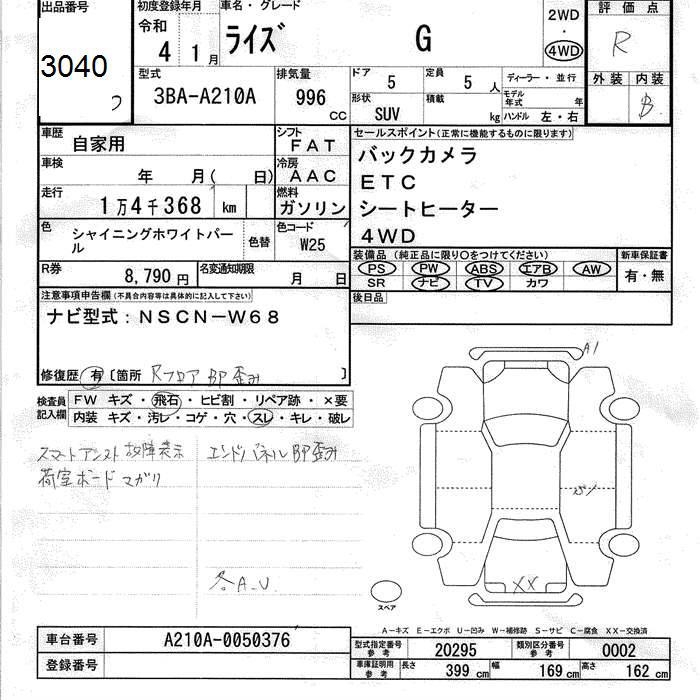 出品番号
3040
初度登録年月
令和
4 1月
車名・グレード
ライズ G
2WD
・
4WD
評価点
R
外装 内装
B
型式
3BA-A210A
排気量
996 CC
ドア 5
定員 5人
形状 SUV
積載 kg
ディーラー・並行
モデル年式 年
ハンドル 左・右
車歴 自家用
シフト FAT
車検 年 月( 日)
冷房 AAC
走行 1万4千368 km
燃料 ガソリン
色 シャイニングホワイトパール
色替
色コード W25
R券 8,790円
名変通知期限 月 日
セールスポイント(正常に機能するものに限ります)
バックカメラ
ETC
シートヒーター
4WD
装備品(純正品に限り○をつけてください)
PS PW ABS エアB AW
SR ナビ TV カワ
新車保証書
有・無
後日品
注意事項申告欄(不具合内容等は具体的に記入して下さい)
ナビ型式:NSCN-W68
修復歴 有 〔箇所 Rフロア 部歪み 〕
検査員記入欄
FW キズ・飛石・ヒビ割・リペア跡・×要
内装 キズ・汚レ・コゲ・穴・スレ・キレ・破レ
スマートアシスト故障表示
荷室ボードマガリ
エンドパネル部歪み
各A.U.
A1
XX
スペア
A-キズ E-エクボ U-凹み W-補修跡 S-サビ C-腐食 XX-交換済
車台番号 A210A-0050376
登録番号
型式指定番号 参考 20295
類別区分番号 参考 0002
車庫証明用 参考 長さ 399 cm 幅 169 cm 高さ 162 cm